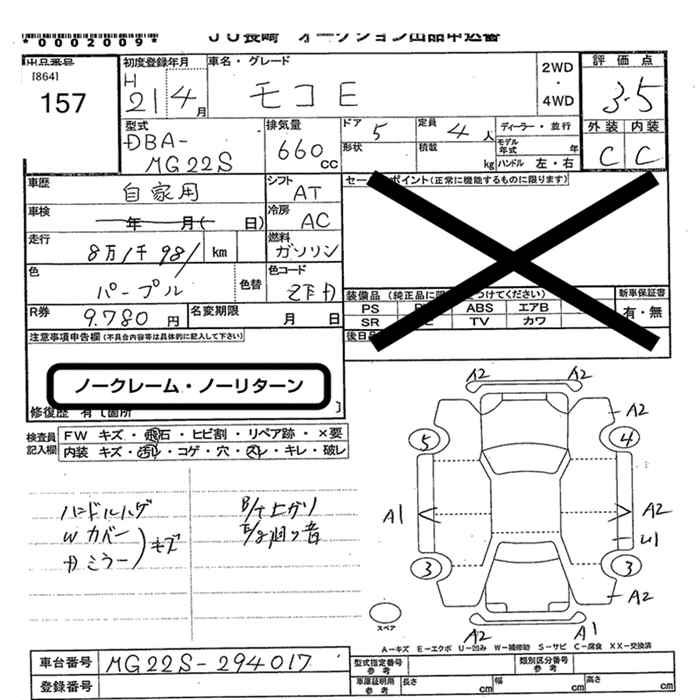 *0002009*
JU長崎 オークション出品申込書
出品番号
[864]
157
初度登録年月
H
21 4月
車名・グレード
モコE
2WD
・
4WD
評価点
3.5
外装 内装
C C
型式
DBA-
MG22S
排気量
660cc
ドア 5
定員 4人
形状
積載 kg
ディーラー・並行
モデル年式 年
ハンドル 左・右
車歴
自家用
シフト
AT
車検
年 月( 日)
冷房
AC
走行
8万1千981 km
燃料
ガソリン
色
パープル
色替
色コード
R券
9.780円
名変期限
月 日
セールスポイント(正常に機能するものに限ります)
装備品
PS ABS エアB
SR TV カワ
新車保証書
有・無
注意事項申告欄(不具合内容等は具体的に記入して下さい)
ノークレーム・ノーリターン
修復歴 有 [箇所 ]
検査員
記入欄
FW キズ・飛石・ヒビ割・リペア跡・×要
内装 キズ・汚れ・コゲ・穴・スレ・キレ・破レ
ハンドルハゲ
Wカバー
カミラー
キズ
B/T上がり
E/g回り音
A2 A2
A2
5 4
A1 A2
U1
3 3
A2
A2 A1
スペア
A-キズ E-エクボ U-凹み W-補修跡 S-サビ C-腐食 XX-交換済
車台番号
MG22S-294017
登録番号
型式指定番号
参考
類別区分番号
参考
車庫証明用
参考
長さ cm
幅 cm
高さ cm